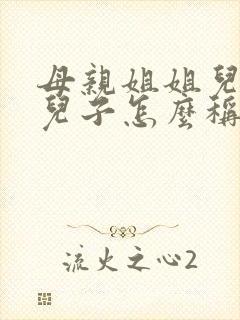 母親姐姐兒
兒子怎麼稱
流火之心2